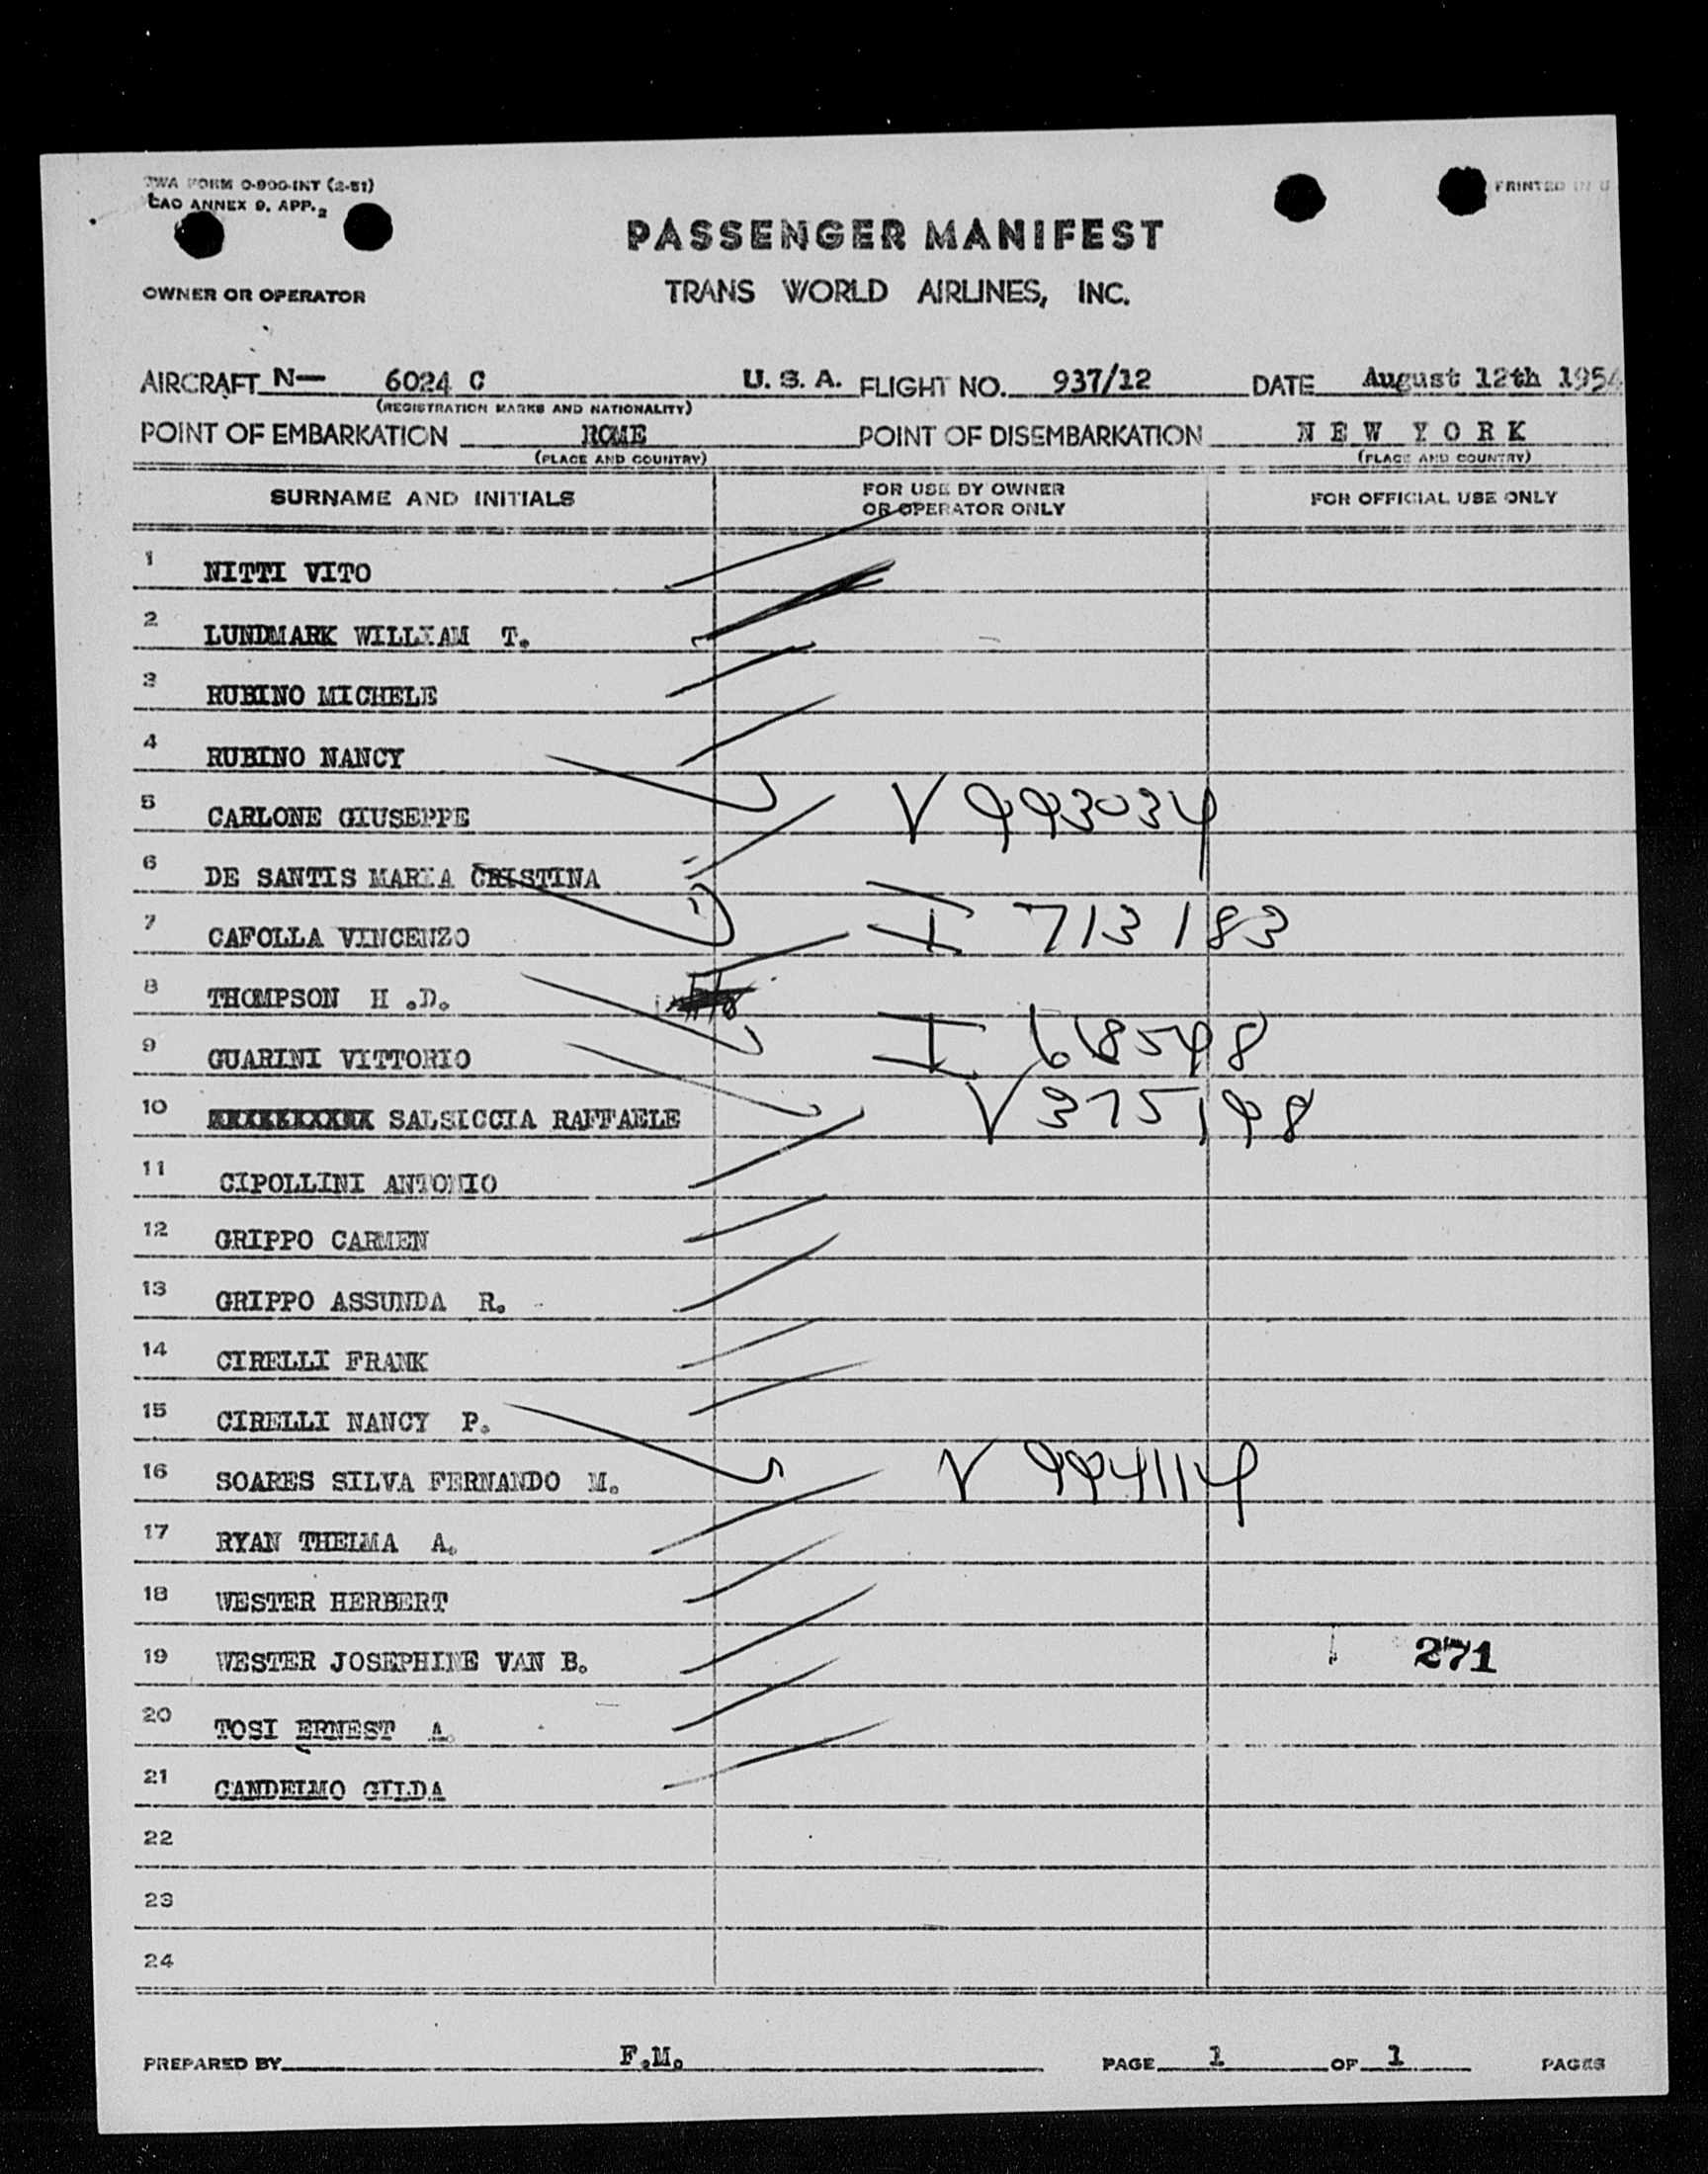 TWA FORM O-900-INT (2-51)
CAO ANNEX 9. APP. 2
PRINTED IN U
PASSENGER MANIFEST
OWNER OR OPERATOR
TRANS WORLD AIRLINES, INC.
AIRCRAFT N— 6024 C U. S. A. FLIGHT NO. 937/12 DATE August 12th 1954
(REGISTRATION MARKS AND NATIONALITY)
POINT OF EMBARKATION ROME POINT OF DISEMBARKATION N E W Y O R K
(PLACE AND COUNTRY) (PLACE AND COUNTRY)
SURNAME AND INITIALS FOR USE BY OWNER OR OPERATOR ONLY FOR OFFICIAL USE ONLY
1 NITTI VITO
2 LUNDMARK WILLIAM T.
3 RUBINO MICHELE
4 RUBINO NANCY
5 CARLONE GIUSEPPE V 993034
6 DE SANTIS MARIA CRISTINA
7 CAFOLLA VINCENZO I 713183
8 THOMPSON H .D.
9 GUARINI VITTORIO I 68598
10 SALSICCIA RAFFAELE V 375198
11 CIPOLLINI ANTONIO
12 GRIPPO CARMEN
13 GRIPPO ASSUNDA R.
14 CIRELLI FRANK
15 CIRELLI NANCY P.
16 SOARES SILVA FERNANDO M. V 994114
17 RYAN THELMA A.
18 WESTER HERBERT
19 WESTER JOSEPHINE VAN B. 271
20 TOSI ERNEST A.
21 CANDELMO GILDA
22
23
24
PREPARED BY F.M. PAGE 1 OF 1 PAGES